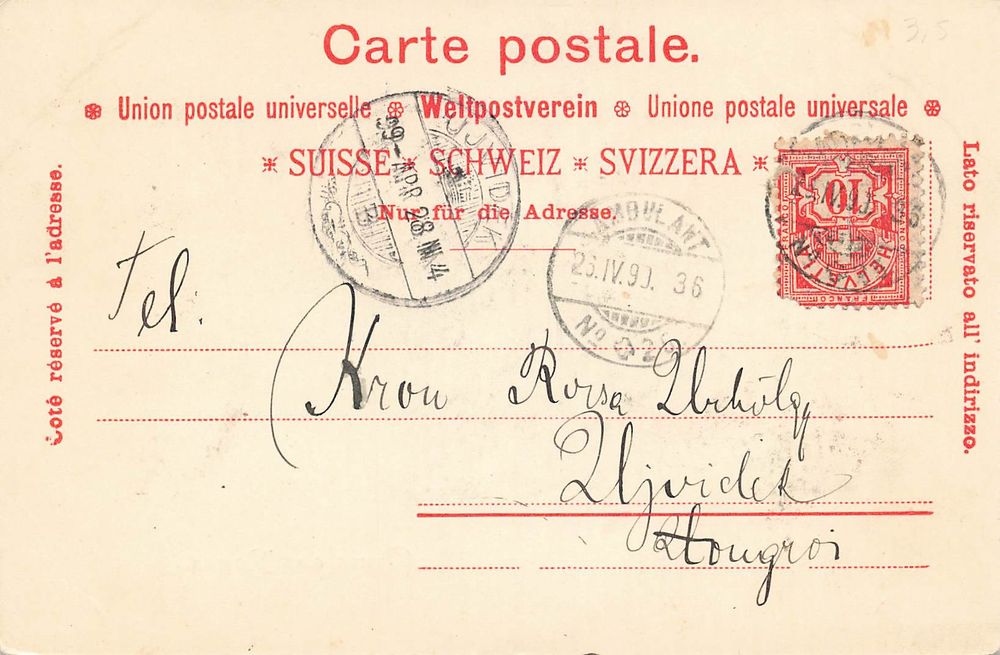 3,5
Carte postale.
Union postale universelle Weltpostverein Unione postale universale
SUISSE SCHWEIZ SVIZZERA
Nur für die Adresse.
Coté réservé à l'adresse.
Lato riservato all' indirizzo.
UJVIDÉK
99 APR 28 N4
AMBULANT
26.IV.99. 36
No 2
10
HELVETIA
FRANCO
Tel.
Kron Rozsa Urhölgy
Ujvidek
Hongroi